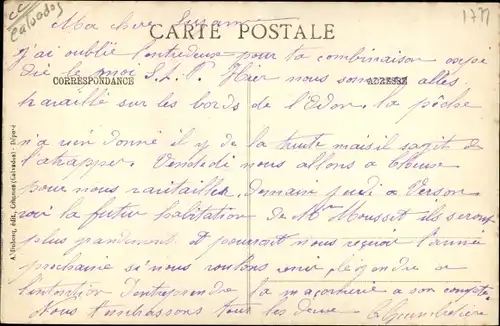 CC
Calvados
1777
Ma chère Suzanne
CARTE POSTALE
J'ai oublié l'entredeux pour ta combinaison expé
die le moi S.L.P. Hier nous sommes allés
CORRESPONDANCE
ADRESSE
travaillé sur les bords de l'Odon. la pêche
n'a rien donné il y de la truite mais il sagit de
l'atrapper. Vendredi nous allons a
pour nous ravitailler, demain jeudi a Verson
voir la futur habitation de Mr Mousset ils seront
plus grandement et pourrait nous reçevoir l'année
prochaine si nous voulons venir. a
l'intention d'entreprendre la maçonnerie a son compte
Nous t'embrassons tous les deux
édit., (Calvados) - Déposé